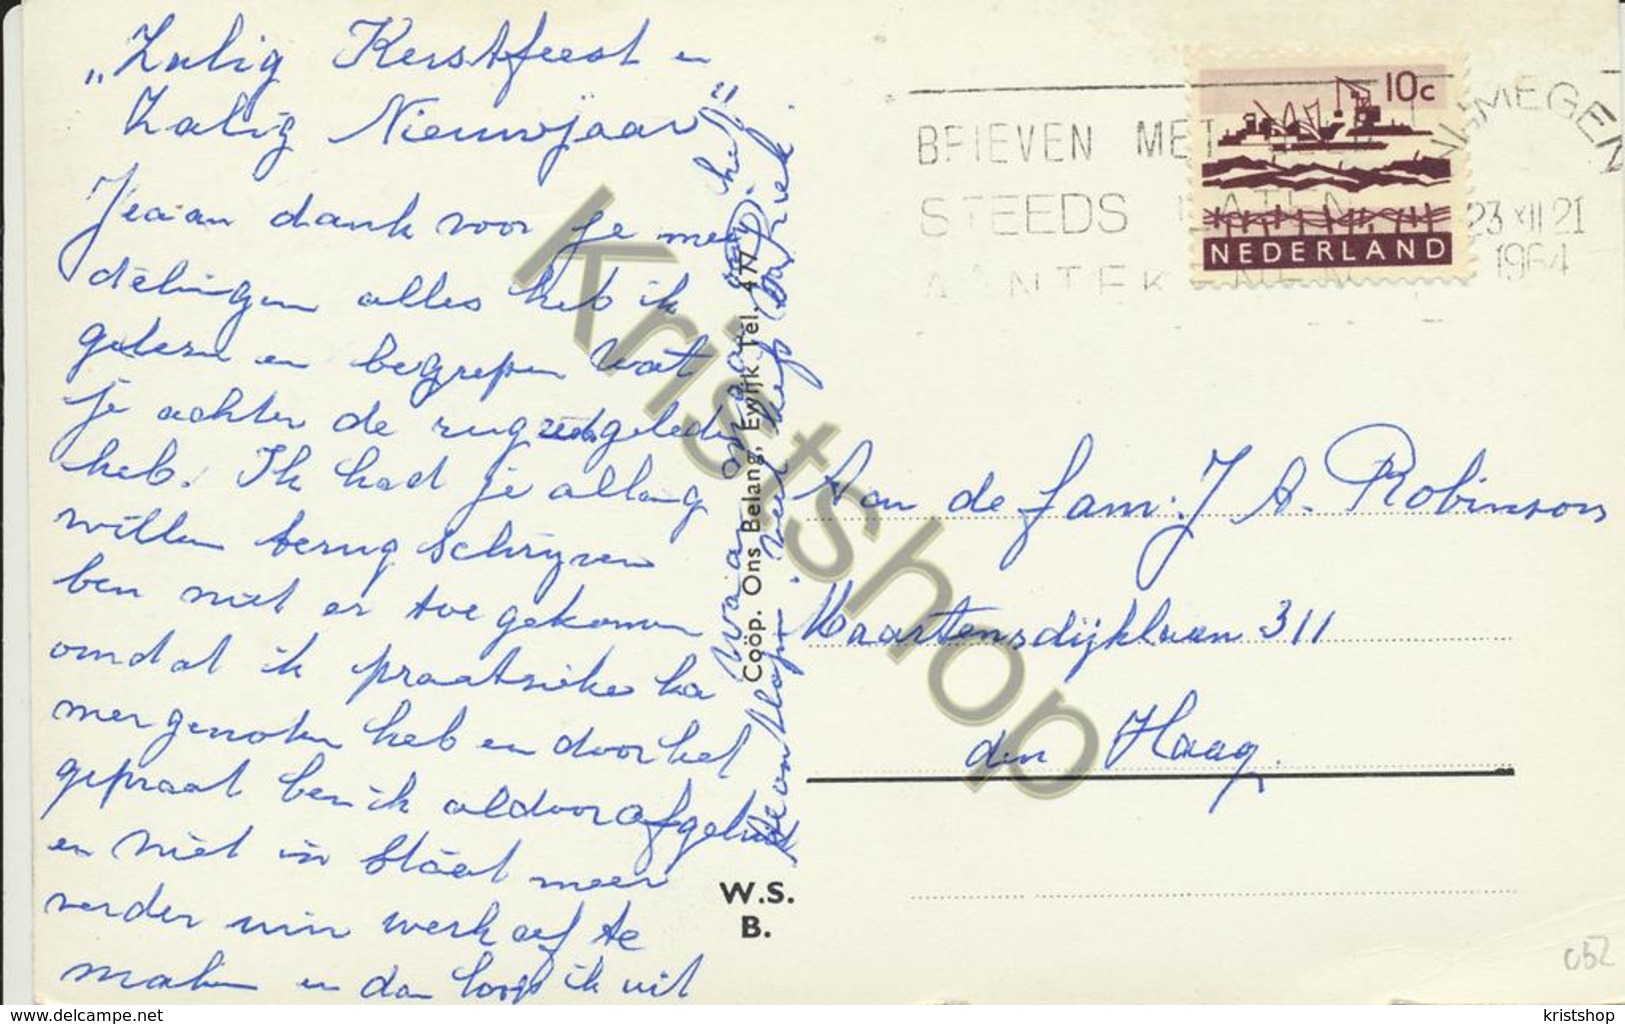 „Zalig Kerstfeest en
Zalig Nieuwjaar"
Jeaan dank voor je mee
delingen alles heb ik
gelezen en begrepen wat
je achter de rug geleden
heb. Ik had je allang
willen terug schrijven
ben niet er toe gekomen
omdat ik praatsieke ka
mergenoten heb en door het
gepraat ben ik aldoor afgeleid
en niet in staat meer
verder mijn werk af te
maken en dan loop ik uit
W.S.
B.
Coöp. Ons Belang, Ewijk, Tel. 477
10c
NEDERLAND
BRIEVEN MET
STEEDS LATEN
AANTEKENEN
NIJMEGEN
23 XII 21
1964
Aan de fam. J A. Robinson
Maartensdijklaan 311
den Haag.
052
Kristshop
www.delcampe.net
kristshop